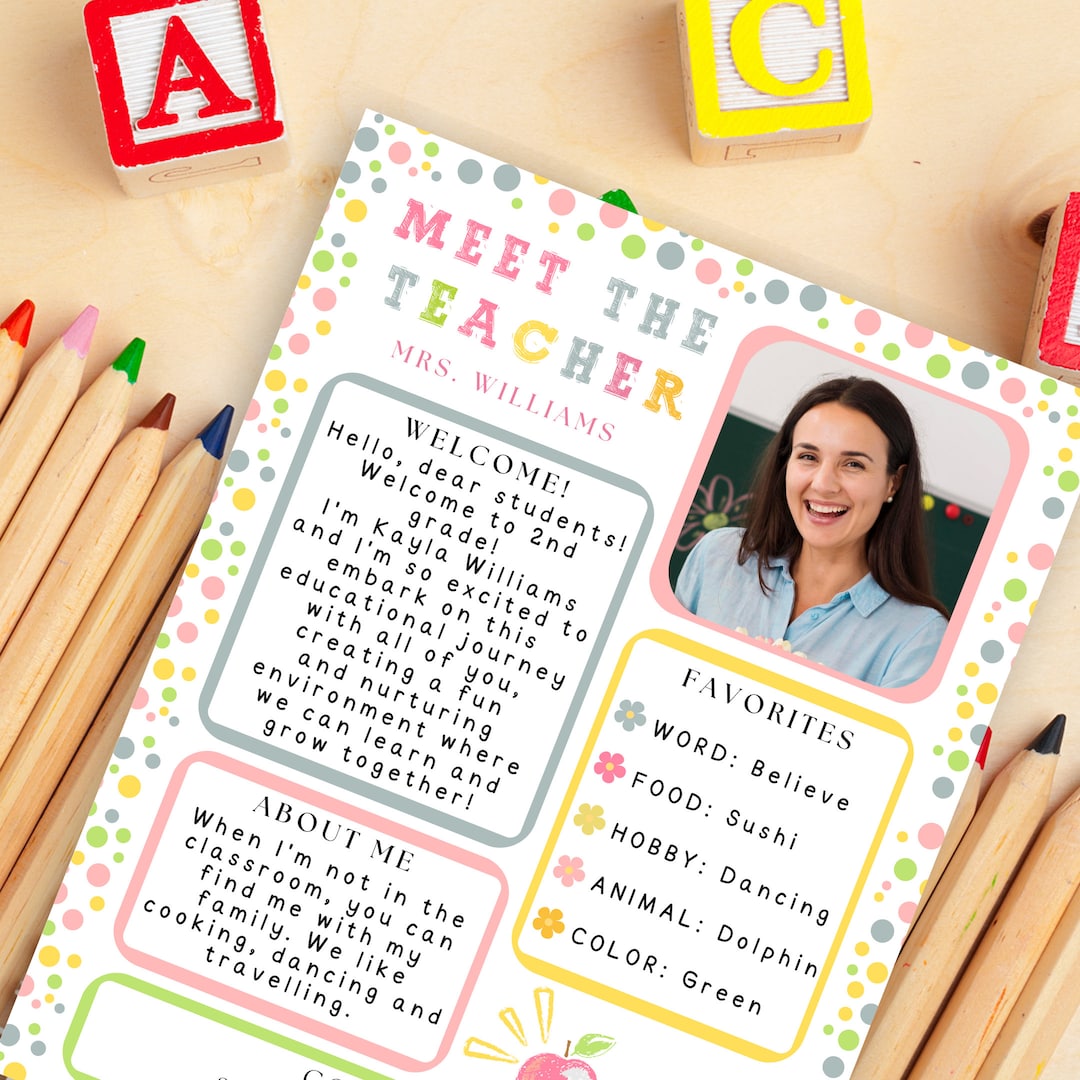 A
C
MEET THE
TEACHER
MRS. WILLIAMS
WELCOME!
Hello, dear students!
Welcome to 2nd
grade!
I'm Kayla Williams
and I'm so excited to
embark on this
educational journey
with all of you,
creating a fun
and nurturing
environment where
we can learn and
grow together!
FAVORITES
WORD: Believe
FOOD: Sushi
HOBBY: Dancing
ANIMAL: Dolphin
COLOR: Green
ABOUT ME
When I'm not in the
classroom, you can
find me with my
family. We like
cooking, dancing and
travelling.